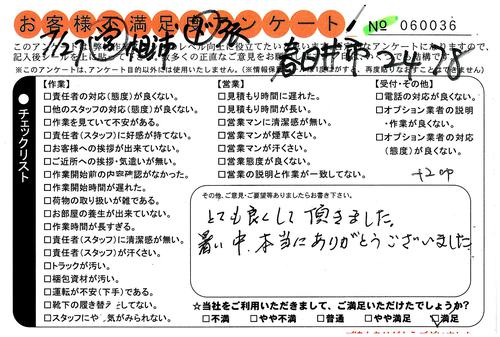 お客様不満足度アンケート
№ 060036
【作業】
□責任者の対応(態度)が良くない。
□他のスタッフの対応(態度)が良くない。
□作業を見ていて不安がある。
□責任者(スタッフ)に好感が持てない。
□お客様への挨拶が出来ていない。
□ご近所への挨拶・気遣いが無い。
□作業開始前の内容確認がなかった。
□作業開始時間が遅れた。
□荷物の取り扱いが雑である。
□お部屋の養生が出来ていない。
□作業時間が長すぎる。
□責任者(スタッフ)に清潔感が無い。
□責任者(スタッフ)が汗くさい。
□トラックが汚い。
□梱包資材が汚い。
□運転が不安(下手)である。
□靴下の履き替えしてない。
□スタッフにや 気がみられない。
【営業】
□見積もり時間に遅れた。
□見積もり時間が長い。
□営業マンに清潔感が無い。
□営業マンが煙草くさい。
□営業マンが汗くさい。
□営業態度が良くない。
□営業の説明と作業が一致してない。
【受付・その他】
□電話の対応が良くない。
□オプション業者の説明
・作業が良くない。
□オプション業者の対応
(態度)が良くない。
●チェックリスト
その他、ご意見・ご要望等ありましたらお書き下さい。
とても良くして頂きました。
暑い中、本当にありがとうございました。
☆当社をご利用いただきまして、ご満足いただけたでしょうか?
□不満 □やや不満 □普通 □やや満足 □満足